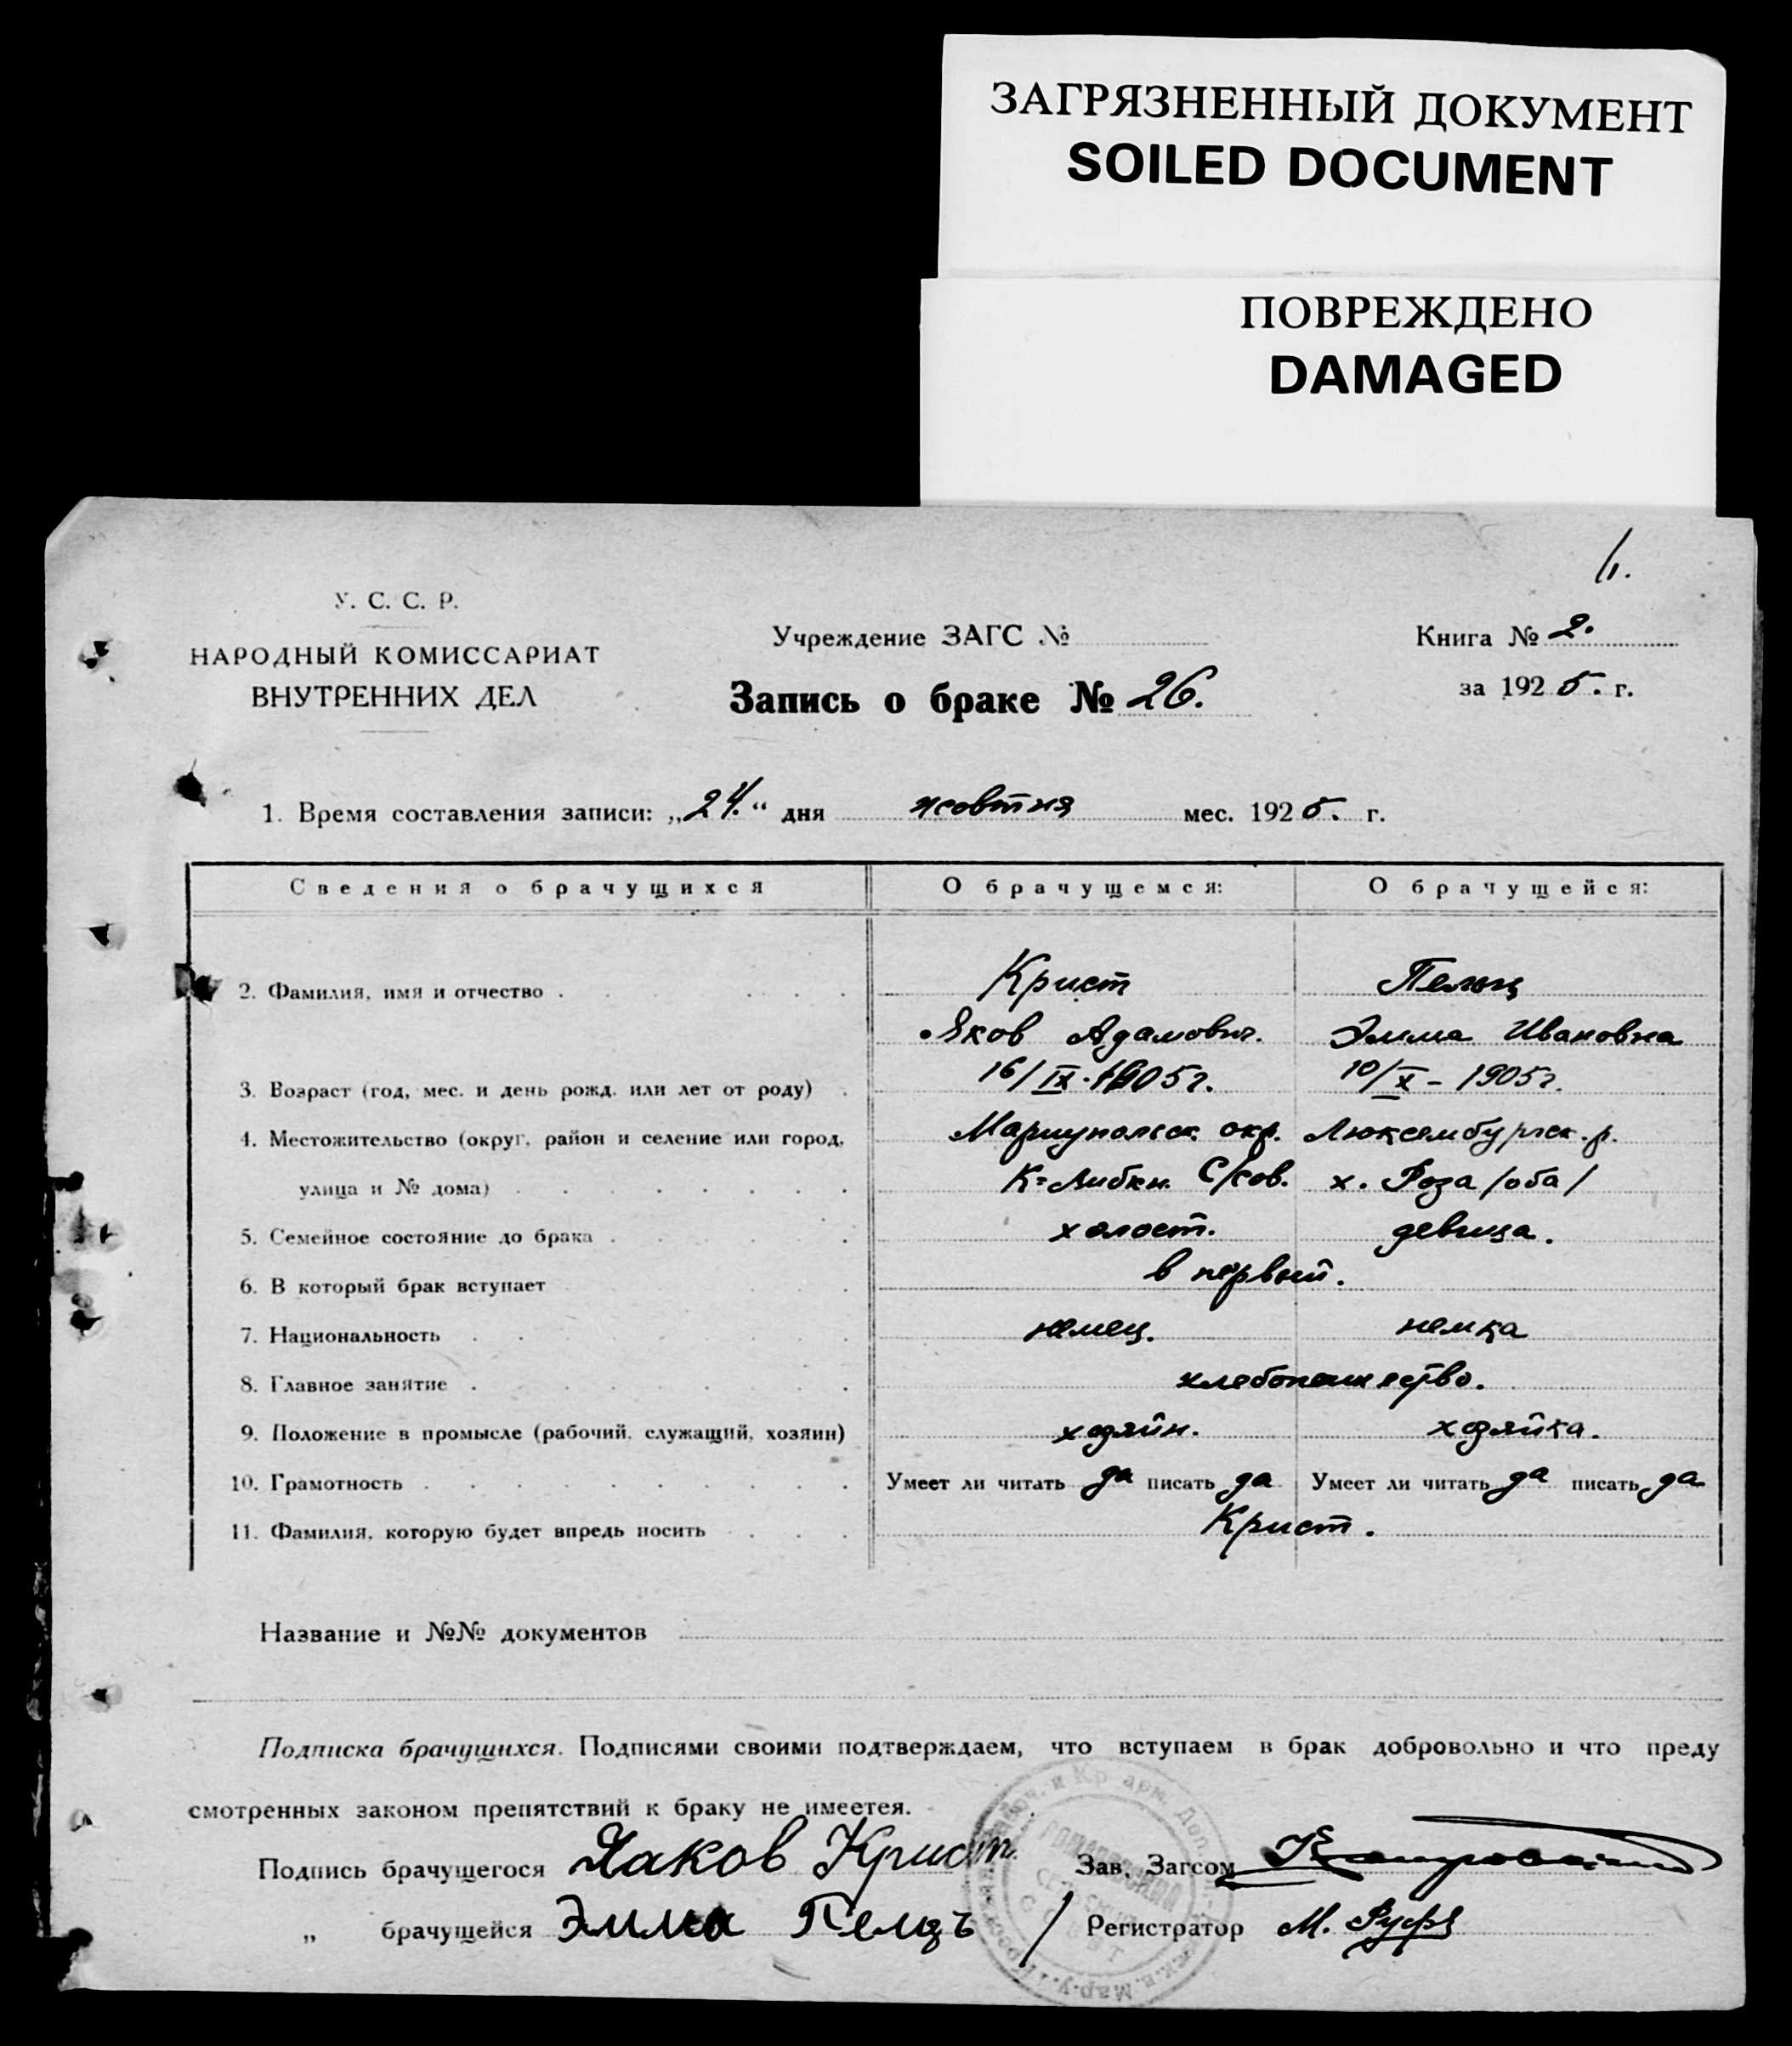 ЗАГРЯЗНЕННЫЙ ДОКУМЕНТ
SOILED DOCUMENT
ПОВРЕЖДЕНО
DAMAGED
У. С. С. Р.
НАРОДНЫЙ КОМИССАРИАТ
ВНУТРЕННИХ ДЕЛ
Учреждение ЗАГС №
Запись о браке № 26.
Книга № 2.
за 1925. г.
1. Время составления записи: „24.“ дня жовтня мес. 1925. г.
Сведения о брачущихся О брачущемся: О брачущейся:
2. Фамилия, имя и отчество Крист Пельц
Яков Адамович. Эмма Ивановна
3. Возраст (год, мес. и день рожд. или лет от роду) 16/IX-1905г. 10/X-1905г.
4. Местожительство (округ, район и селение или город, Мариупольск. окр. Люксембургск. р.
улица и № дома) К=Либкн. С/сов. х. Роза /оба/
5. Семейное состояние до брака холост. девица.
6. В который брак вступает в первый.
7. Национальность немец. немка
8. Главное занятие хлебопашество.
9. Положение в промысле (рабочий, служащий, хозяин) хозяин. хозяйка.
10. Грамотность Умеет ли читать да писать да Умеет ли читать да писать да
11. Фамилия, которую будет впредь носить Крист.
Название и №№ документов
Подписка брачущихся. Подписями своими подтверждаем, что вступаем в брак добровольно и что преду
смотренных законом препятствий к браку не имеетея.
Подпись брачущегося Яаков Крист Зав. Загсом
„ брачущейся Эмма Пелцъ / Регистратор М.